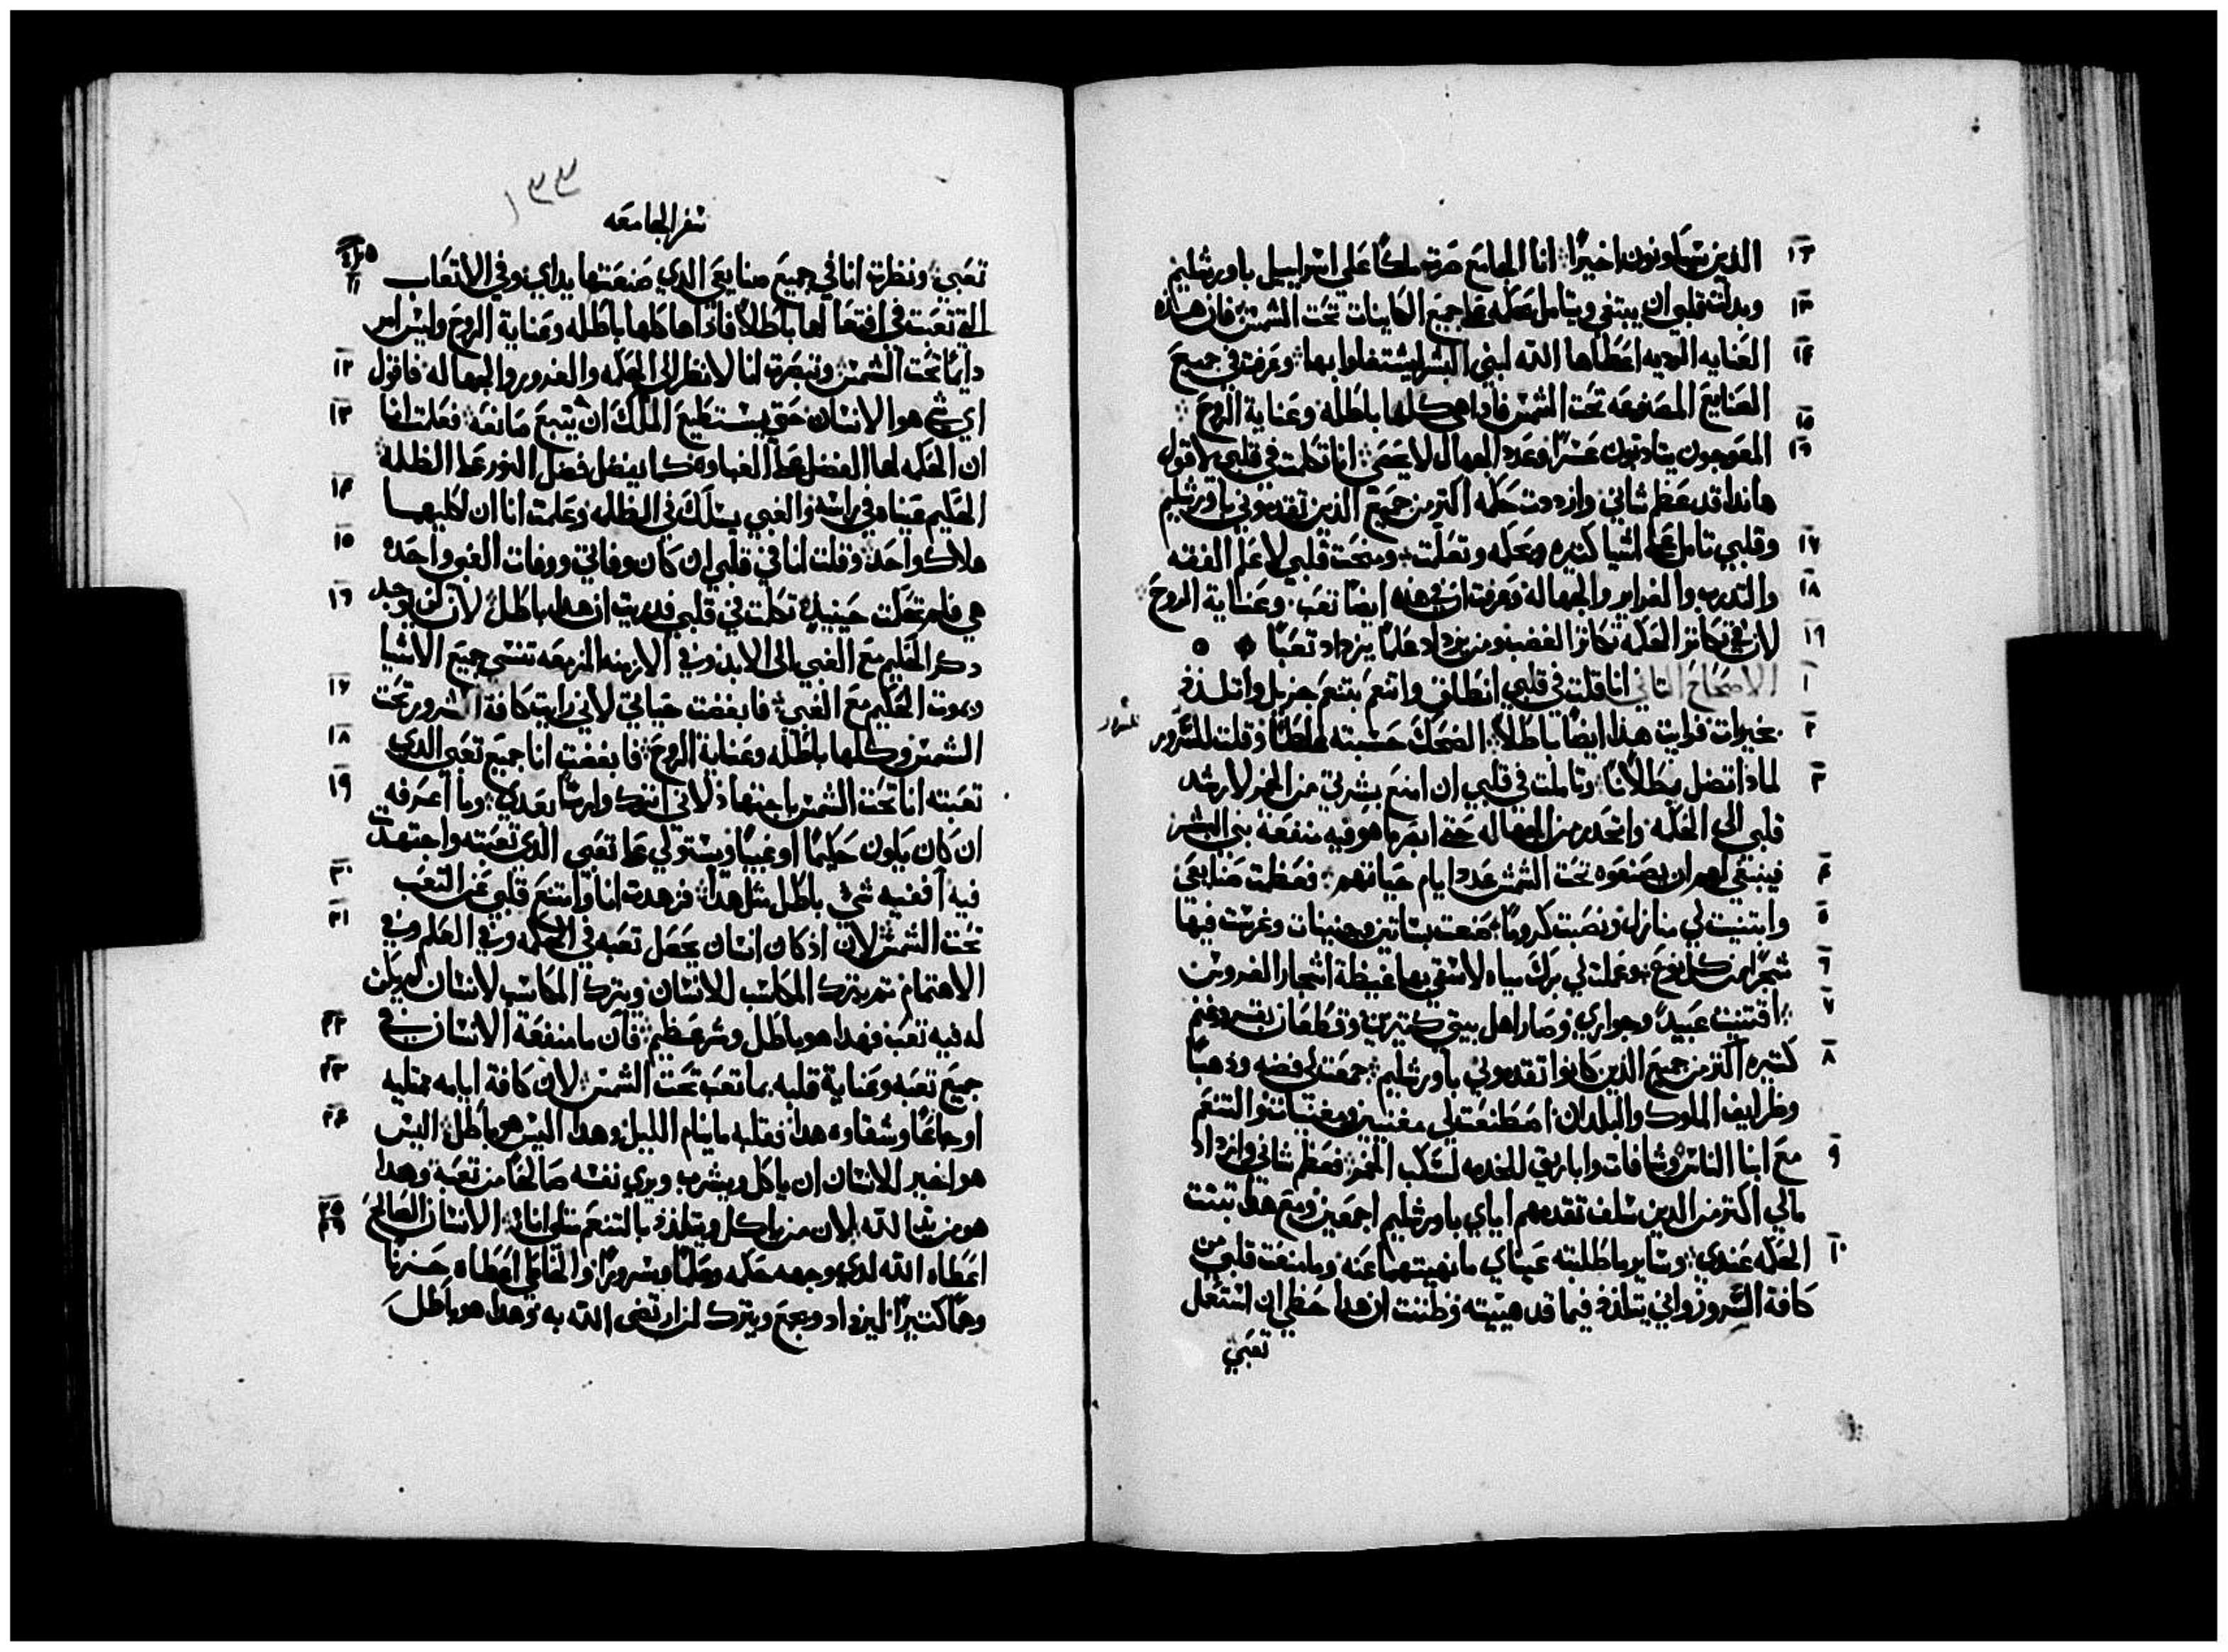 ١٢ الذين سيكونون اخيرًا انا الجامع صرت ملكًا علي اسراييل باورشليم
١٣ وبدلت قلبي ان يبتغي ويتامل بحكمه عما جميع الكاينات تحت الشمس فان هذه
١٤ العنايه الرديه اعطاها الله لبني البشر ليشتغلوا بها وعرفت في جميع
الصنايع المصنوعه تحت الشمس فاذا هي كلها باطله وعناية الروح
١٥ ١٦ المعوجون يتادبون عسرًا وعدد الجهال لا يحصي انا تكلمت في قلبي لاقول
هاندا قد عظم شاني وازددت حكمه اكتر من جميع الذين تقدموني باورشليم
١٧ وقلبي تامل عما اشيا كتيره بحكمه وتعلمت ومنحت قلبي لاعلم الفقه
١٨ والتدرب والغرابر والجهاله وعرفت ان في هذه ايضًا تعب وعناية الروح
١٩ لان في تكاتر الحكمه تكاتر الغضب ومن يزداد علمًا يزداد تعبًا
١ الاصحاح التاني انا قلت في قلبي انطلق واتنعم بتنعم جزيل واتلذذ
٢ بخيرات فرايت هذا ايضًا باطلًا الضحك حسبته غلطًا وقلت للسرور
للسرور
٣ لماذا تضل بطلانًا وتاملت في قلبي ان امنع بشرتي من الخمر لارشد
قلبي الي الحكمه واتحدر من الجهاله حتي ابصر ما هو فيه منفعة بني البشر
٤ فينبغي لهم ان يصنعوه تحت الشمس عدد ايام حياتهم فعظمت صنايعي
٥ وابتنيت لي منازل ونصبت كرومًا صنعت بساتين وجنينات وغرست فيها
٦ شجرًا من كل نوع وعملت لي برك مياه لاسقي بها غيظة اشجار الغروس
٧ اقتنيت عبيدًا وجواري وصار اهل بيتي كتيرين وقطعان بقر وغنم
٨ كتيره اكتر من جميع الذين كانوا تقدموني باورشليم جمعت لي فضه وذهبًا
وظرايف الملوك والبلدان اصطنعت لي مغنيين ومغنيات والتنعم
٩ مع ابنا الناس وشافات واباريق للخدمه لسكب الخمر فعظم شاني وازداد
مالي اكتر من الذين سلف تقدمهم اياي باورشليم اجمعين ومع هذا تبتت
١٠ الحكمه عندي وساير ما طلبته عيناي ما نهيتهما عنه وما منعت قلبي من
كافة السرور واني يتلذذ فيما قد هييته وظننت ان هذا حظي ان استعمل
تعبي
١٣٣
سفر الجامعه
١١ تعبي ونظرت انا في جميع صنايعي الذي صنعتها يداي وفي الاتعاب
التي تعبت في اقتعالها باطلًا فاذا ها كلها باطله وعناية الروح وليس امر
١٢ دايمًا تحت الشمس وتبصرت انا لانظر الي الحكمه والغرور والجهاله فاقول
١٣ اي شي هو الانسان حتي يستطيع الملك ان يتبع صانعه فعلمت انا
ان الحكمه لها الفضل عما الغباوه كما يفضل فضل النور عما الظلمة
١٤ الحكيم عيناه في راسه والغبي يسلك في الظلمه وعلمت انا ان لكليهما
١٥ هلاك واحد وقلت انا في قلبي ان كان وفاتي ووفات الغبي واحده
١٦ هي فلم تحكمت حينيد تكلمت في قلبي فدريت ان هذا باطل لان لن يوجد
دكر الحكيم مع الغبي الي الابد وفي الازمنه المزمعه تنسي جميع الاشيا
١٧ ويموت الحكيم مع الغبي فابغضت حياتي لاني رايت كافة الشرور تحت
١٨ الشمس وكلها باطله وعناية الروح فابغضت انا جميع تعبي الدي
١٩ تعبته انا تحت الشمس باجتهاد لاني اترك وارتًا بعدي وما اعرفه
ان كان يكون حكيمًا او غبيًا ويستولي عما تعبي الذي تعبته واجتهدت
٢٠ فيه افغيه شي باطل متل هدا فزهدت انا وامتنع قلبي عن التعب
٢١ تحت الشمس لان اذ كان انسان يجعل تعبه في الحكمه وفي العلم وفي
الاهتمام تم يترك المكاسب للانسان ويترك المكاسب لانسان لم يكن
٢٢ له فيه تعب فهدا هو باطل وشر عظيم فان ما منفعة الانسان في
٢٣ جميع تعبه وعناية قلبه بما تعب تحت الشمس لان كافة ايامه ممتليه
٢٤ اوجاعًا وشقاوه هدا فقلبه ما ينام الليل وهدا اليس هو باطل اليس
هو اخير للانسان ان ياكل ويشرب ويري نفسه صالحًا من تعبه وهدا
٢٥ ٢٦ هو من يد الله لان من ياكل ويتلذذ بالتنعم متلي انا الانسان الصالح
اعطاه الله لدي وجهه حكمه وعلمًا وسرورًا والخاطي اعطاه حزنًا
وهمًا كتيرًا ليزداد ويجمع ويترك لمن ارتضي الله به وهدا هو باطل